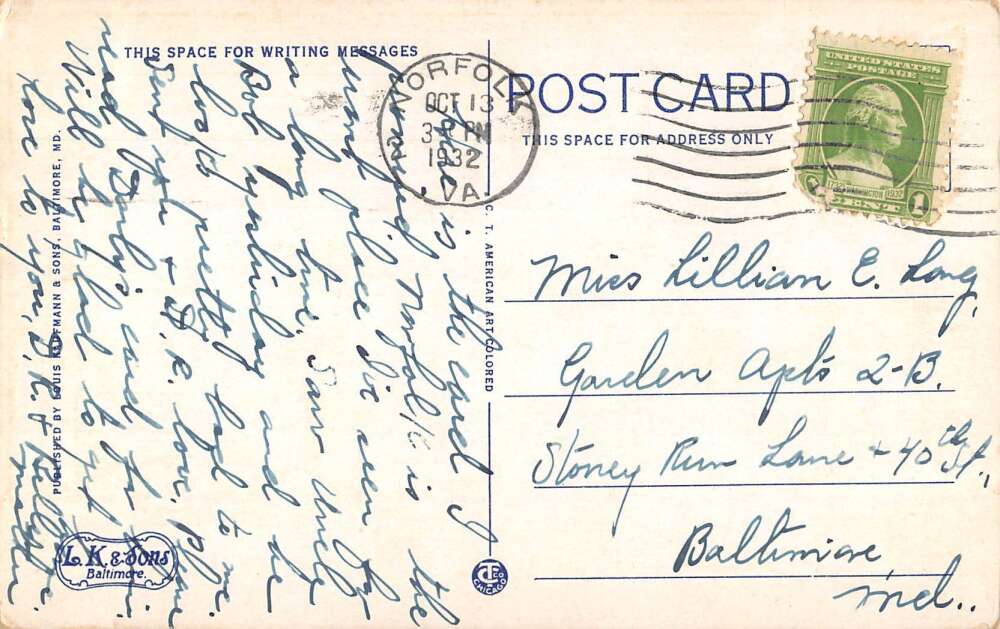 THIS SPACE FOR WRITING MESSAGES
NORFOLK
OCT 13
3- PM
1932
VA
POST CARD
THIS SPACE FOR ADDRESS ONLY
UNITED STATES
POSTAGE
1732 WASHINGTON 1932
1 CENT
is the card I
Norfolk is the
place I've seen for
a long time. Saw Uncle
Bob yesterday and he
looks pretty bad to me.
Sent you + D. R. love. Please
read Darly's card for him
Will be glad to get home
Love to you, D. R. +
Mother
Miss Lillian E. Long,
Garden Apts 2-B.
Stoney Run Lane + 40th St.,
Baltimore,
Md..
PUBLISHED BY LOUIS KAUFMANN & SONS, BALTIMORE, MD.
C. T. AMERICAN ART COLORED
L. K. & Sons
Baltimore.
CHICAGO